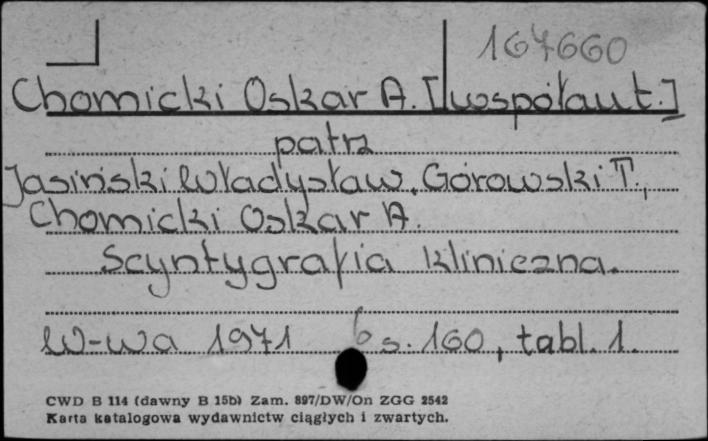 167660
Chomicki Oskar A. [współaut.]
patrz
Jasiński Władysław, Górowski T.,
Chomicki Oskar A.
Scyntygrafia kliniczna.
W-wa 1971 s. 160, tabl. 1.
CWD B 114 (dawny B 15b) Zam. 897/DW/On ZGG 2542
Karta katalogowa wydawnictw ciągłych i zwartych.